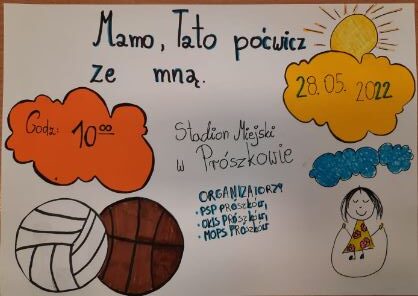 Mamo, Tato poćwicz
ze mną.
28.05.2022
Godz: 10⁰⁰
Stadion Miejski
w Prószkowie
ORGANIZATORZY
• PSP PRÓSZKÓW,
• OKIS PRÓSZKÓW,
• MOPS PRÓSZKÓW